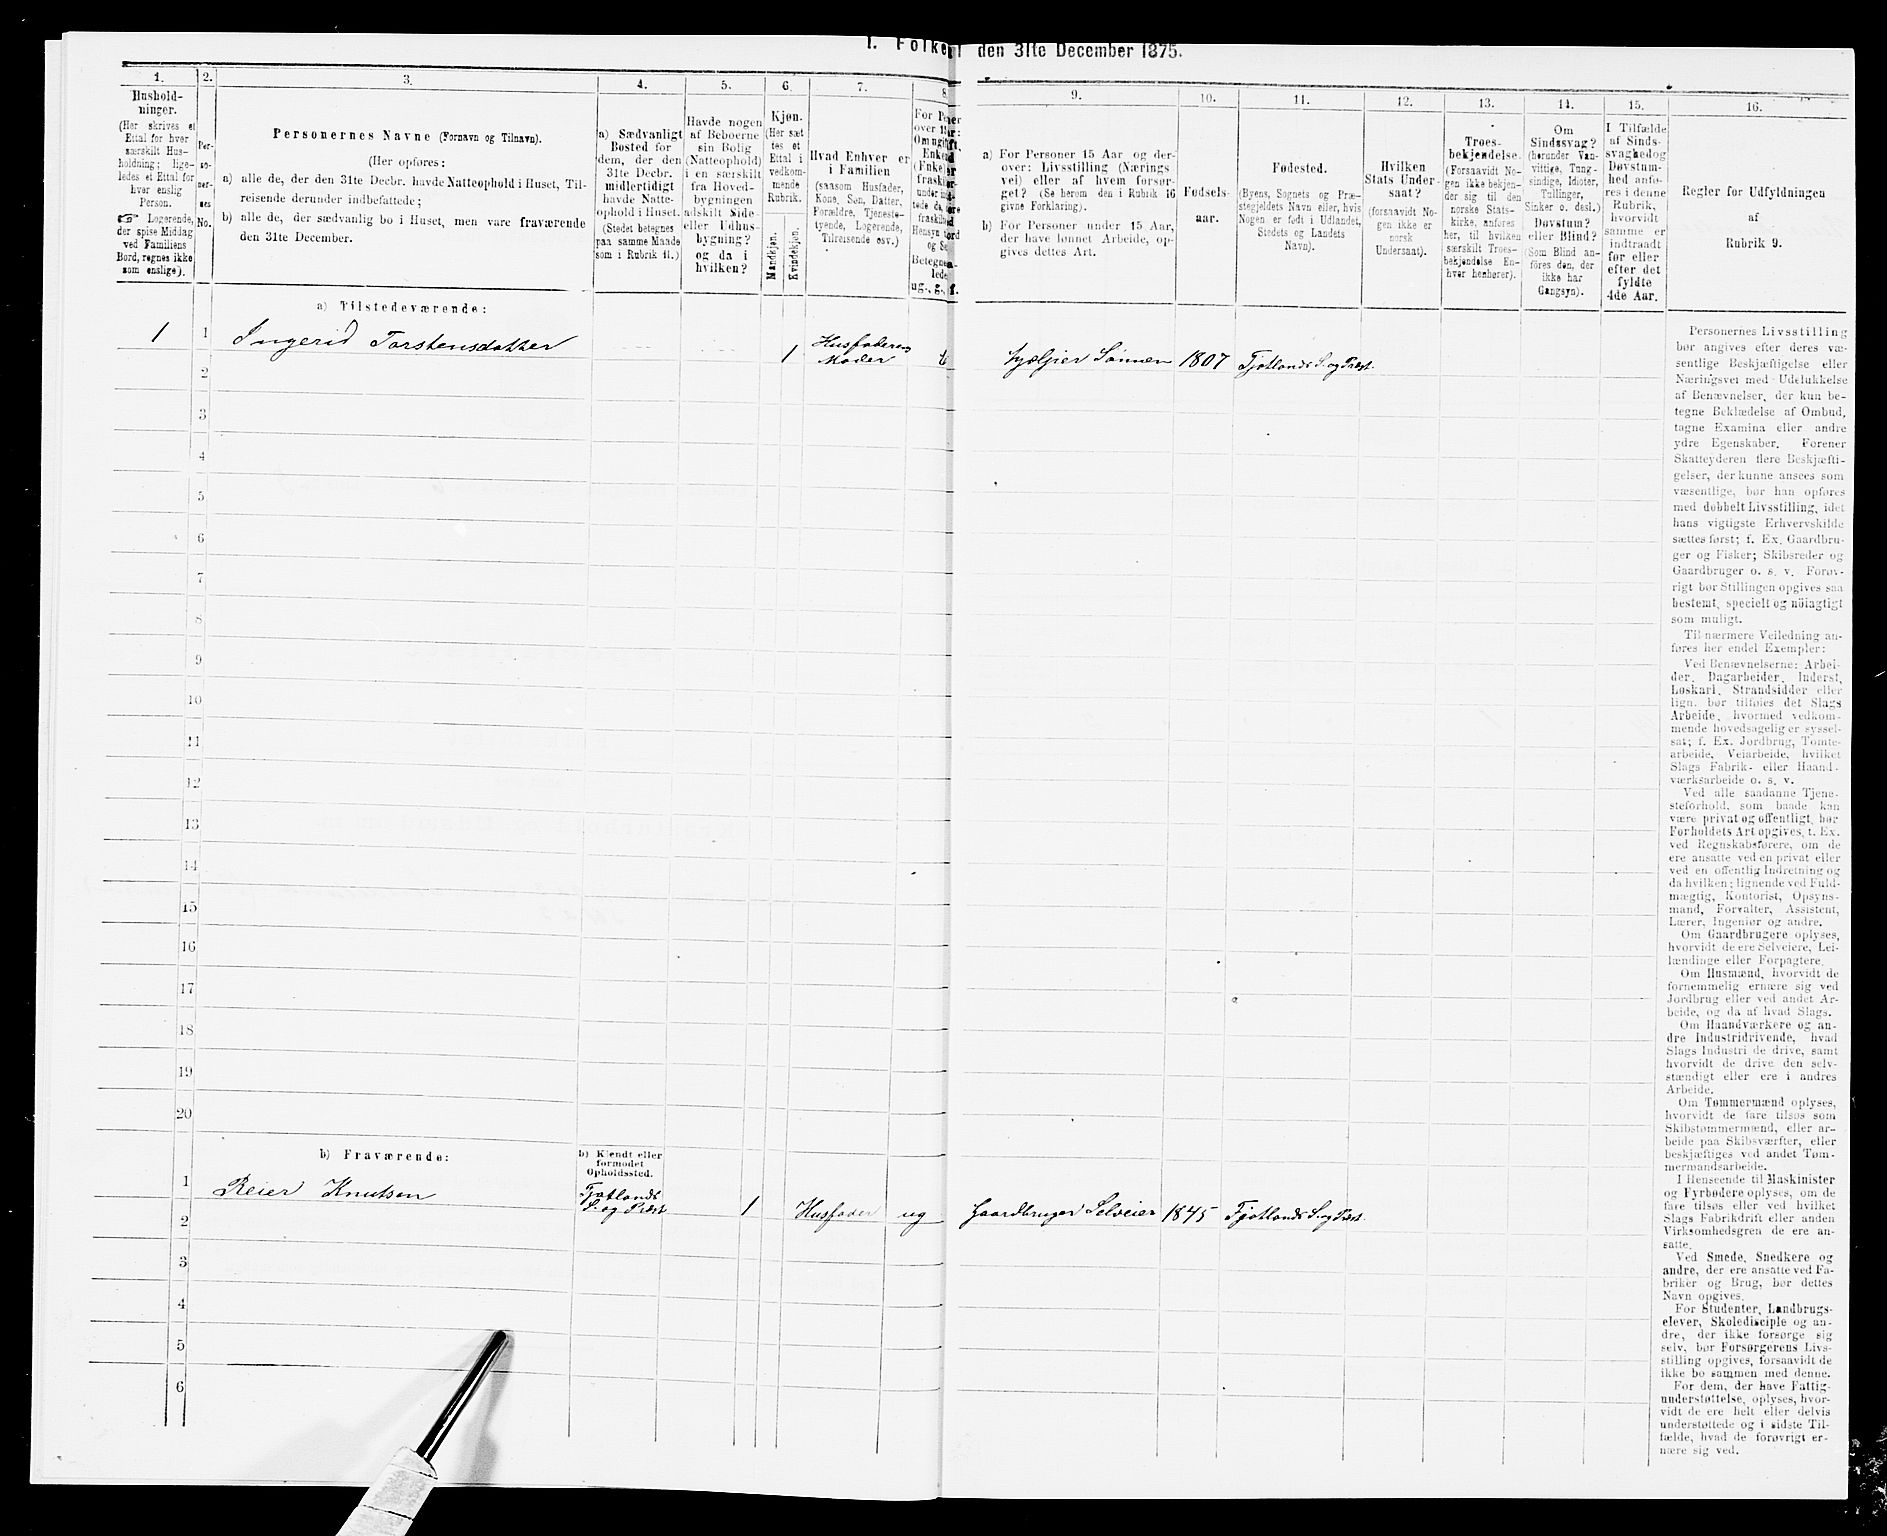 1. Folke den 31te December 1875.
1.
Hushold-
ninger.
(Her skrives et
Ettal for hver
særskilt Hus-
holdning; lige-
ledes et Ettal for
hver enslig
Person.
Logerende,
der spise Middag
ved Familiens
Bord, regnes ikke
som enslige).
2.
Per-
so-
ner-
nes
No.
3.
Personernes Navne (Fornavn og Tilnavn).
(Her opføres:
a) alle de, der den 31te Decbr. havde Natteophold i Huset, Til-
reisende derunder indbefattede;
b) alle de, der sædvanlig bo i Huset, men vare fraværende
den 31te December.
4.
a) Sædvanligt
Bosted for
dem, der den
31te Decbr.
midlertidigt
havde Natte-
ophold i Huset.
(Stedet betegnes
paa samme Maade
som i Rubrik 11.)
5.
Havde nogen
af Beboerne
sin Bolig
(Natteophold)
i en særskilt
fra Hoved-
bygningen
adskilt Side-
eller Udhus-
bygning?
og da i
hvilken?
6.
Kjøn.
(Her sæt
tes et
Ettal i
vedkom-
mende
Rubrik.
Mandkjøn.
Kvindekjøn.
7.
Hvad Enhver er
i Familien
(saasom Husfader,
Kone, Søn, Datter,
Forældre, Tjeneste-
tyende, Logerende,
Tilreisende osv.)
8.
ug., g.,
9.
a) For Personer 15 Aar og der-
over: Livsstilling (Nærings
vei) eller af hvem forsør-
get? (Se herom den i Rubrik 16
givne Forklaring).
b) For Personer under 15 Aar,
der have lønnet Arbeide, op-
gives dettes Art.
10.
Fødsels-
aar.
11.
Fødested.
(Byens, Sognets og Præ-
stegjeldets Navn eller, hvis
Nogen er født i Udlandet,
Stedets og Landets
Navn).
12.
Hvilken
Stats Under-
saat?
(forsaavidt No-
gen ikke er
norsk
Undersaat).
13.
Troes-
bekjendelse.
(Forsaavidt No-
gen ikke bekjen-
der sig til den
norske Stats-
kirke, anføres
her, til hvilken
særskilt Troes-
bekjendelse En-
hver henhører).
14.
Om
Sindssvag?
(herunder Van-
vittige, Tung-
sindige, Idioter,
Tullinger,
Sinker o. desl.)
Døvstum?
eller Blind?
(Som Blind an-
føres den, der
ikke har
Gangsyn).
15.
I Tilfælde
af Sinds-
svaghed og
Døvstum-
hed anfø-
res i denne
Rubrik,
hvorvidt
samme er
indtraadt
før eller
efter det
fyldte
4de Aar.
16.
Regler for Udfyldningen
af
Rubrik 9.
a) Tilstedeværende:
1 1 Ingerid Torstensdatter 1 Husfaderens
Moder Sønnen 1807 Fjotlands S. og Præst.
2
3
4
5
6
7
8
9
10
11
12
13
14
15
16
17
18
19
20
b) Fraværende:
b) Kjendt eller
formodet
Opholdssted.
1 Reier Knutsen Fjotlands
S. og Præst. 1 Husfader ug Gaardbruger Selveier 1845 Fjotlands S. og Præst.
2
3
4
5
6
Personernes Livsstilling
bør angives efter deres væ-
sentlige Beskjæftigelse eller
Næringsvei med Udelukkelse
af Benævnelser, der kun be-
tegne Beklædelse af Ombud,
tagne Examina eller andre
ydre Egenskaber. Forener
Skatteyderen flere Beskjæfti-
gelser, der kunne ansees som
væsentlige, bør han opføres
med dobbelt Livsstilling, idet
hans vigtigste Erhvervskilde
sættes først; f. Ex. Gaardbru-
ger og Fisker; Skibsreder og
Gaardbruger o. s. v. Forøv-
rigt bør Stillingen opgives saa
bestemt, specielt og nøiagtigt
som muligt.
Til nærmere Veiledning an-
føres her endel Exempler:
Ved Benævnelserne: Arbei-
der, Dagarbeider, Inderst,
Løskarl, Strandsidder eller
lign. bør tilføies det Slags
Arbeide, hvormed vedkom-
mende hovedsagelig er syssel-
sat; f. Ex. Jordbrug, Tomte-
arbeide, Veiarbeide, hvilket
Slags Fabrik- eller Haand-
værksarbeide o. s. v.
Ved alle saadanne Tjene-
steforhold, som baade kan
være privat og offentligt, bør
Forholdets Art opgives, t. Ex.
ved Regnskabsførere, om de
ere ansatte ved en privat eller
ved en offentlig Indretning og
da hvilken; lignende ved Fuld-
mægtig, Kontorist, Opsyns-
mand, Forvalter, Assistent,
Lærer, Ingeniør og andre.
Om Gaardbrugere oplyses,
hvorvidt de ere Selveiere, Lei-
lændinge eller Forpagtere.
Om Husmænd, hvorvidt de
fornemmelig ernære sig ved
Jordbrug eller ved andet Ar-
beide, og da af hvad Slags.
Om Haandværkere og an-
dre Industridrivende, hvad
Slags Industri de drive, samt
hvorvidt de drive den selv-
stændigt eller ere i andres
Arbeide.
Om Tømmermænd oplyses,
hvorvidt de fare tilsøs som
Skibstømmermænd, eller ar-
beide paa Skibsværfter, eller
beskjæftiges ved andet Tøm-
mermandsarbeide.
I Henseende til Maskinister
og Fyrbødere oplyses, om de
fare tilsøs eller ved hvilket
Slags Fabrikdrift eller anden
Virksomhedsgren de ere an-
satte.
Ved Smede, Snedkere og
andre, der ere ansatte ved Fa-
briker og Brug, bør dettes
Navn opgives.
For Studenter, Landbrugs-
elever, Skoledisciple og an-
dre, der ikke forsørge sig
selv, bør Forsørgerens Livs-
stilling opgives, forsaavidt de
ikke bo sammen med denne.
For dem, der have Fattig-
understøttelse, oplyses, hvor-
vidt de ere helt eller delvis
understøttede og i sidste Til-
fælde, hvad de forøvrigt er-
nære sig ved.